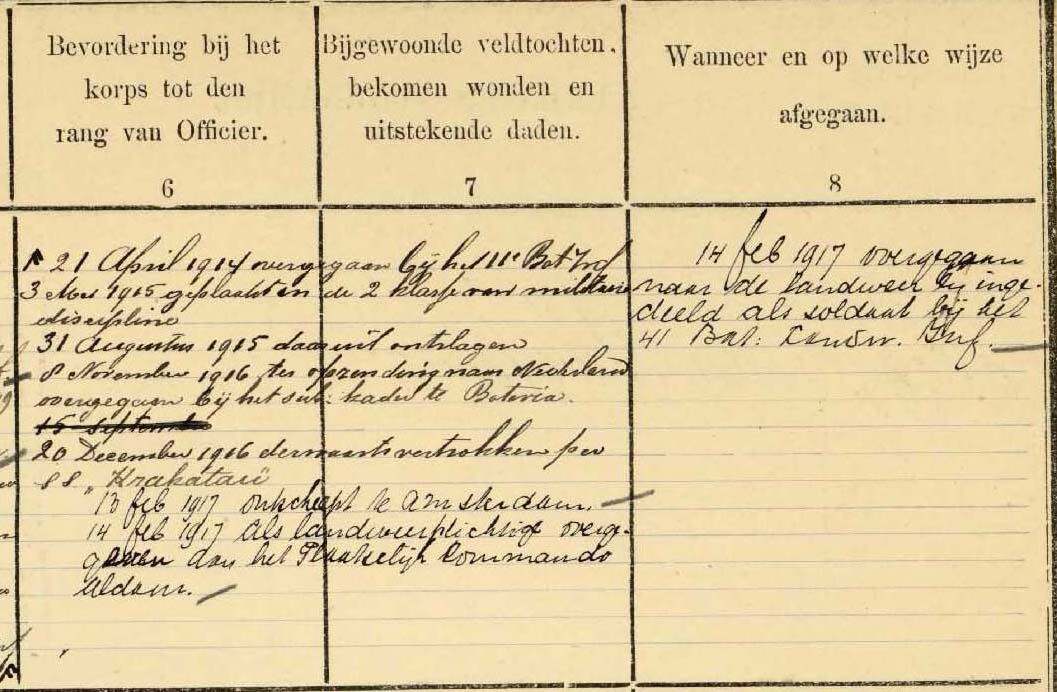 Bevordering bij het
korps tot den
rang van Officier.
6
Bijgewoonde veldtochten,
bekomen wonden en
uitstekende daden.
7
Wanneer en op welke wijze
afgegaan.
8
21 April 1914 overgegaan bij het 11e Bat Inf
3 Mei 1915 geplaatst in de 2 klasse van militaire
discipline
31 Augustus 1915 daaruit ontslagen
8 November 1916 ter opzending naar Nederland
overgegaan bij het sub: kader te Batavia.
15 September
20 December 1916 derwaarts vertrokken per
SS „Krakatau"
13 feb 1917 ontscheept te Amsterdam.
14 feb 1917 als landweerplichtige overge-
geven aan het Plaatselijk Commando
Aldaar.
14 feb 1917 overgegaan
naar de landweer bij inge-
deeld als soldaat bij het
41 Bat: Landw. Inf.